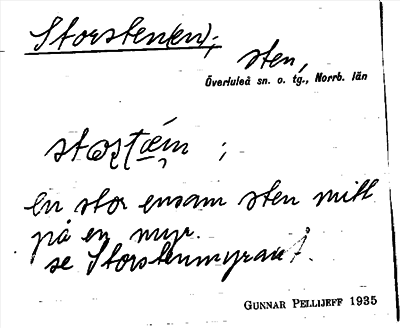 Storsten(en);
sten,
Överluleå sn. o. tg., Norrb. län
;
en stor ensam sten mitt
på en myr.
se Storstenmyran
GUNNAR PELLIJEFF 1935